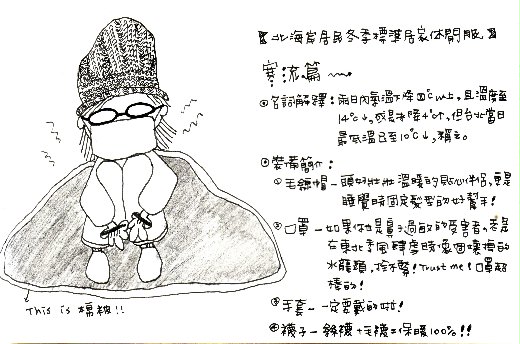 北海岸居民冬季標準居家休閒服
寒流篇
名詞解釋：兩日內氣溫下降 8℃以上，且溫度至
14℃↓，或是未降4℃，但台北當日
最低溫已至10℃↓，稱之。
裝備簡介：
①毛線帽－頭好壯壯 溫暖的貼心伴侶，更是
睡覺時固定髮型的好幫手！
②口罩－如果你是鼻子過敏的受害者，老是
在東北季風肆虐時像個壞掉的
水龍頭，拴不緊！Trust me！口罩超
棒的！
③手套－一定要戴的啦！
④襪子－絲襪＋毛襪＝保暖100%!!
This is 棉被!!